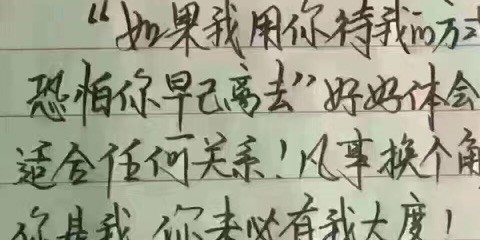 “如果我用你待我的方式
恐怕你早已离去”好好体会
适合任何关系！凡事换个角
你是我 你未必有我大度！